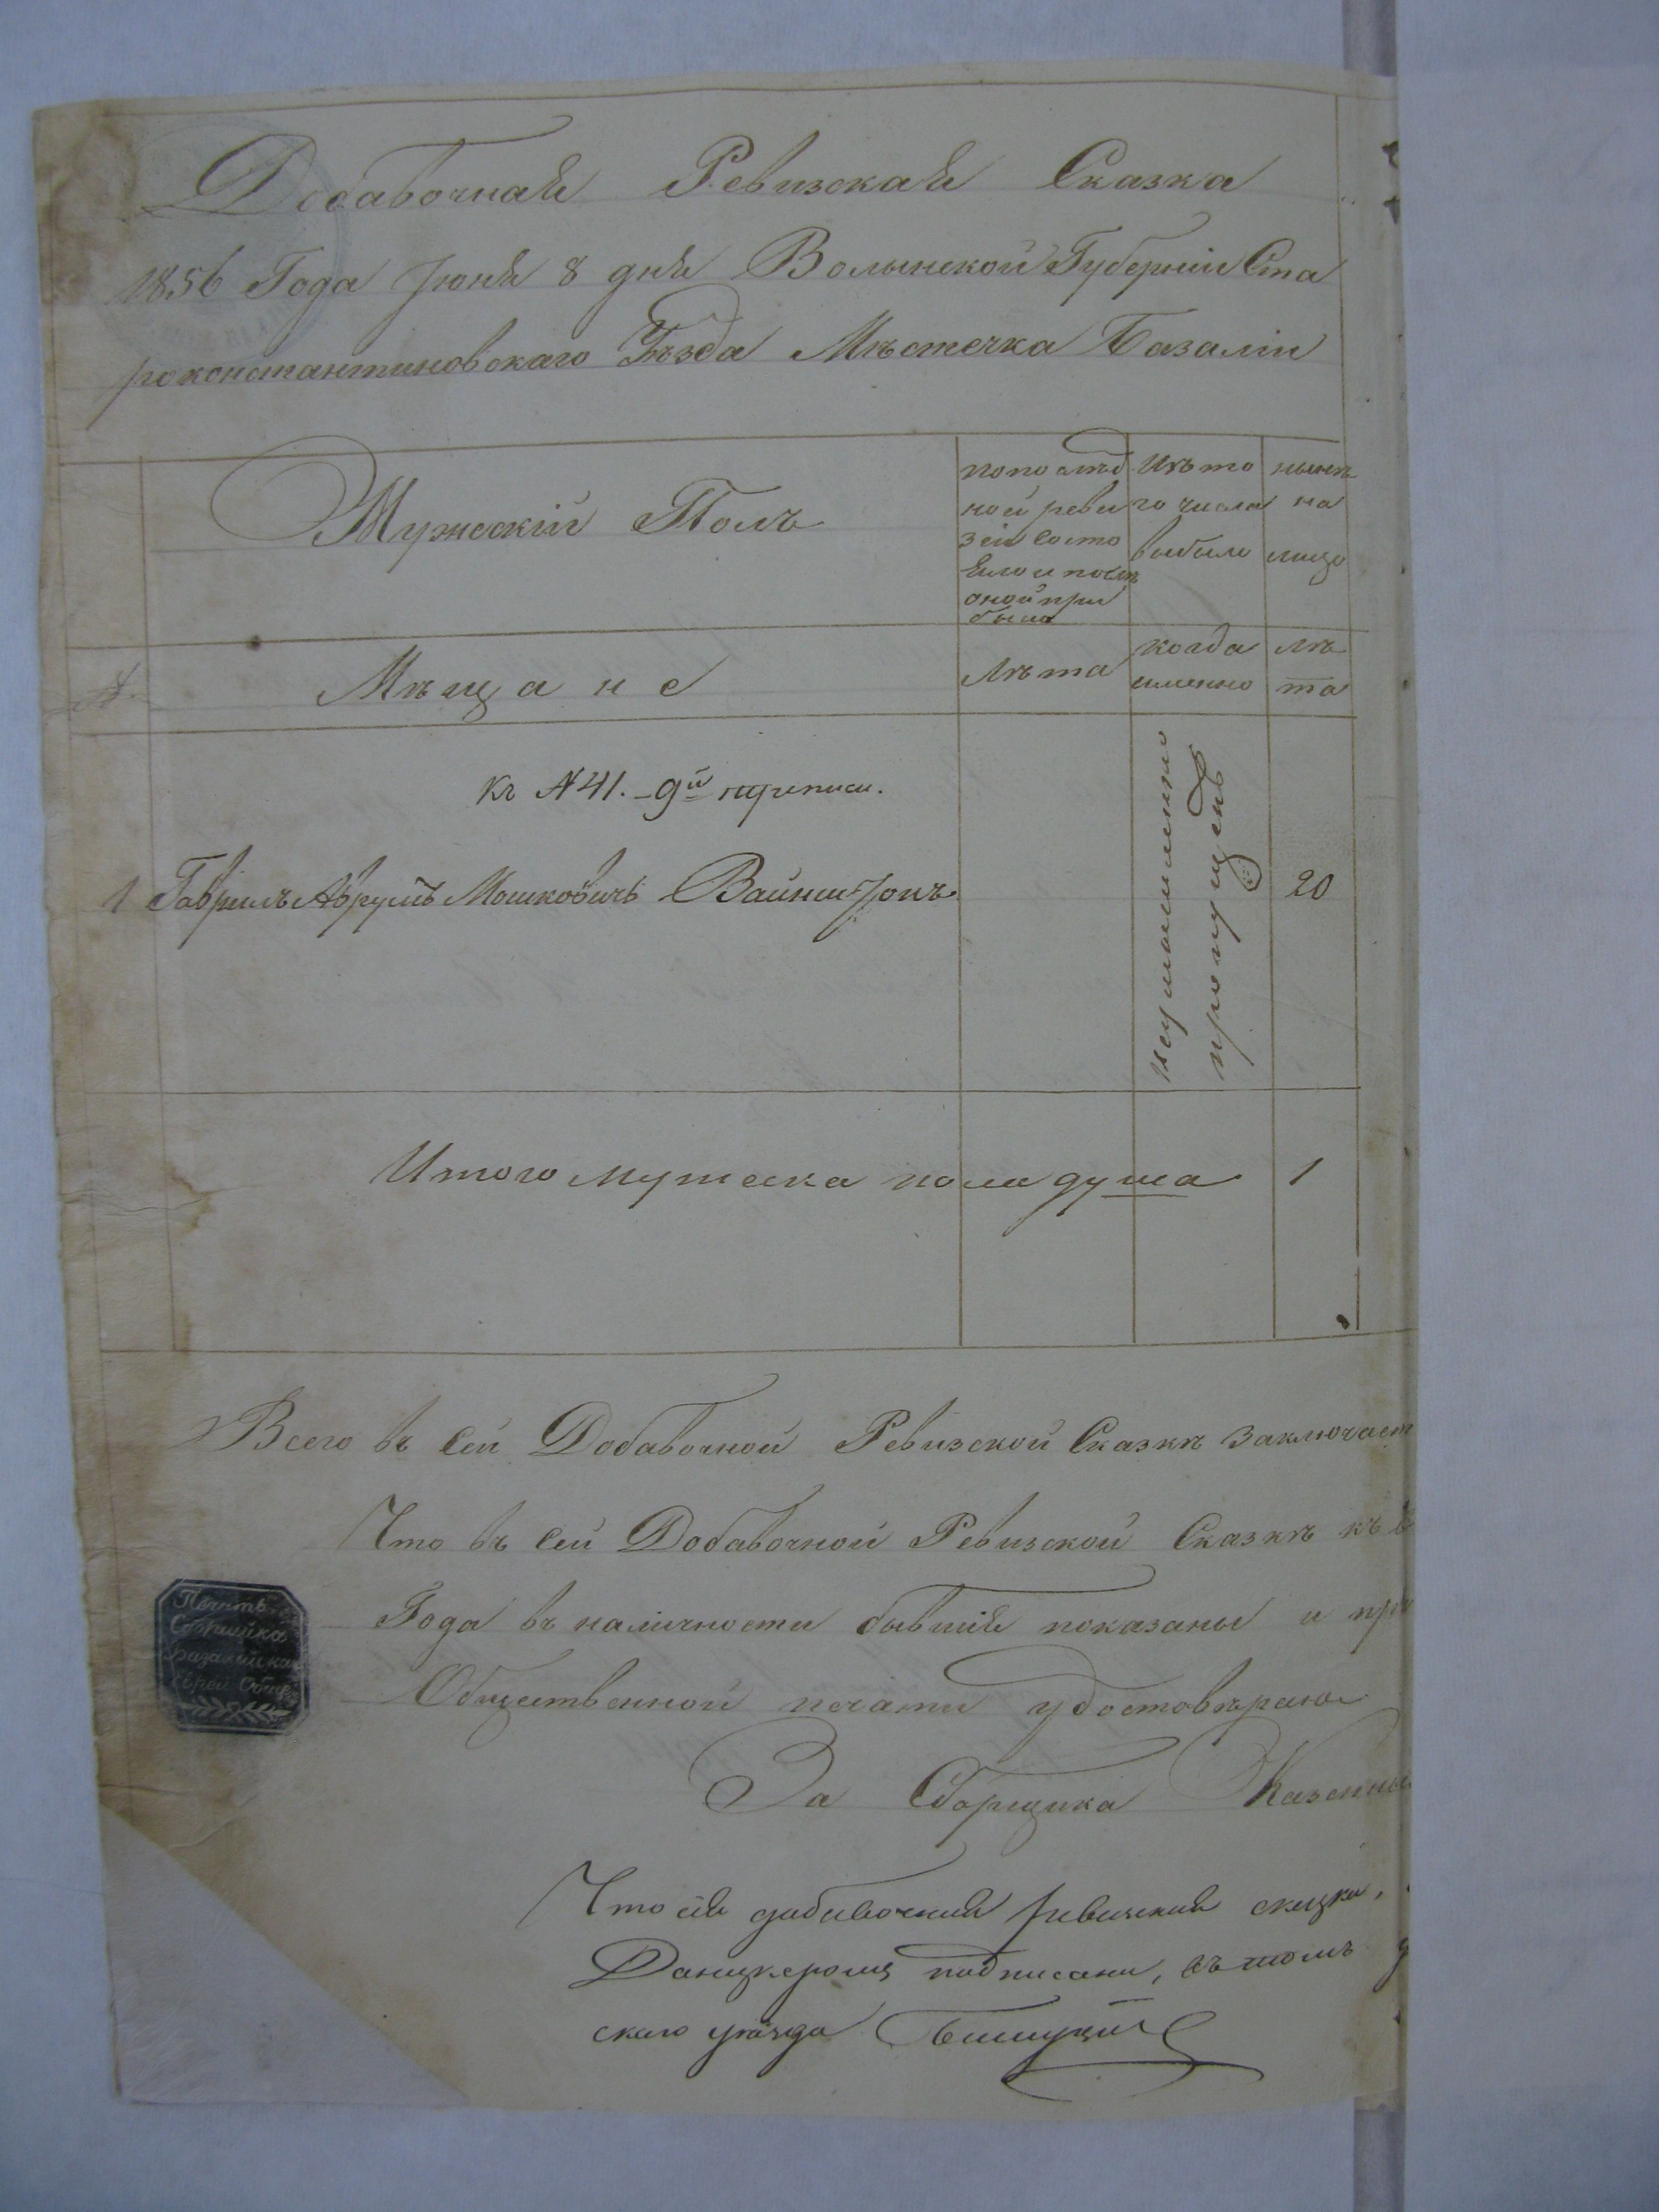 Добавочная Ревизская Сказка
1856 Года Июня 8 дня Волынской Губерніи Ста
роконстантиновскаго Уѣзда Мѣстечка Базаліи
Мужескій Полъ
по послѣд
ной реви
зіи состо
яло и послѣ
оной при
было
Изъ то
го числа
выбыло
нынѣ
на
лицо
Мѣщане
Лѣта
когда
именно
лѣ
та
Къ №41.-9й переписи.
1 Гаврилъ Аврумъ Мошковичъ
20
неумышленно
пропущенъ
Итого мужеска пола душа 1
Всего въ сей Добавочной Ревизской Сказкѣ заключает
Что въ сей Добавочной Ревизской Сказкѣ къ
Года въ наличности бывшія показаны и
Общественной печати удостовѣряю
За Сборщика Казенны
Печать
Сборщика
Базалійска
Еврей Общ
Что сія добавочная ревизская сказка,
подписана, въ томъ
скаго уѣзда